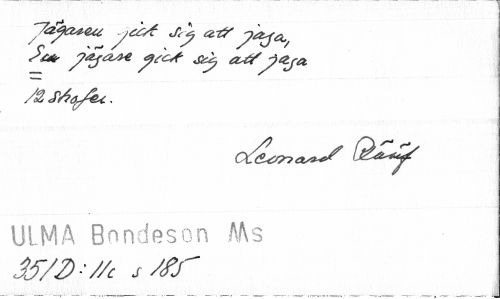 Jägaren jick sig att jaga,
En jägare gick sig att jaga
=
12 strofer.
Leonard Rääf
ULMA Bondeson Ms
351D: 11c s 185